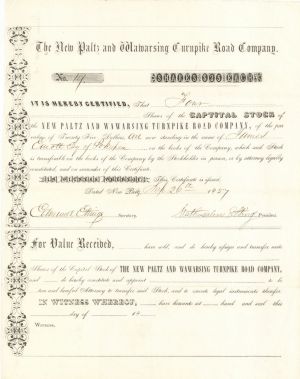 The New Paltz and Wawarsing Turnpike Road Company.
No. 19
SHARES $25 EACH
IT IS HEREBY CERTIFIED, That Four
Shares of the CAPTITAL STOCK of
the NEW PALTZ AND WAWARSING TURNPIKE ROAD COMPANY, of the par
value of Twenty Five Dollars, are now standing in the name of James
Emott Esq of Po'keepsie on the books of the Company, which said Stock
is transferable on the books of the Company by the Stockholder in person, or by attorney legally
constituted, and on surrender of this Certificate.
This Certificate is issued
Dated New Paltz, Sep 26th 1857
Edmund Eltinge Secretary. Eltinge President.
For Value Received, have sold, and do hereby assign and transfer unto
Shares of the Capital Stock of THE NEW PALTZ AND WAWARSING TURNPIKE ROAD COMPANY,
and do hereby constitute and appoint to be
true and lawful Attorney to transfer said Stock, and to execute legal instruments therefor.
IN WITNESS WHEREOF, have hereunto set hand and seal this
day of 18
Witness,